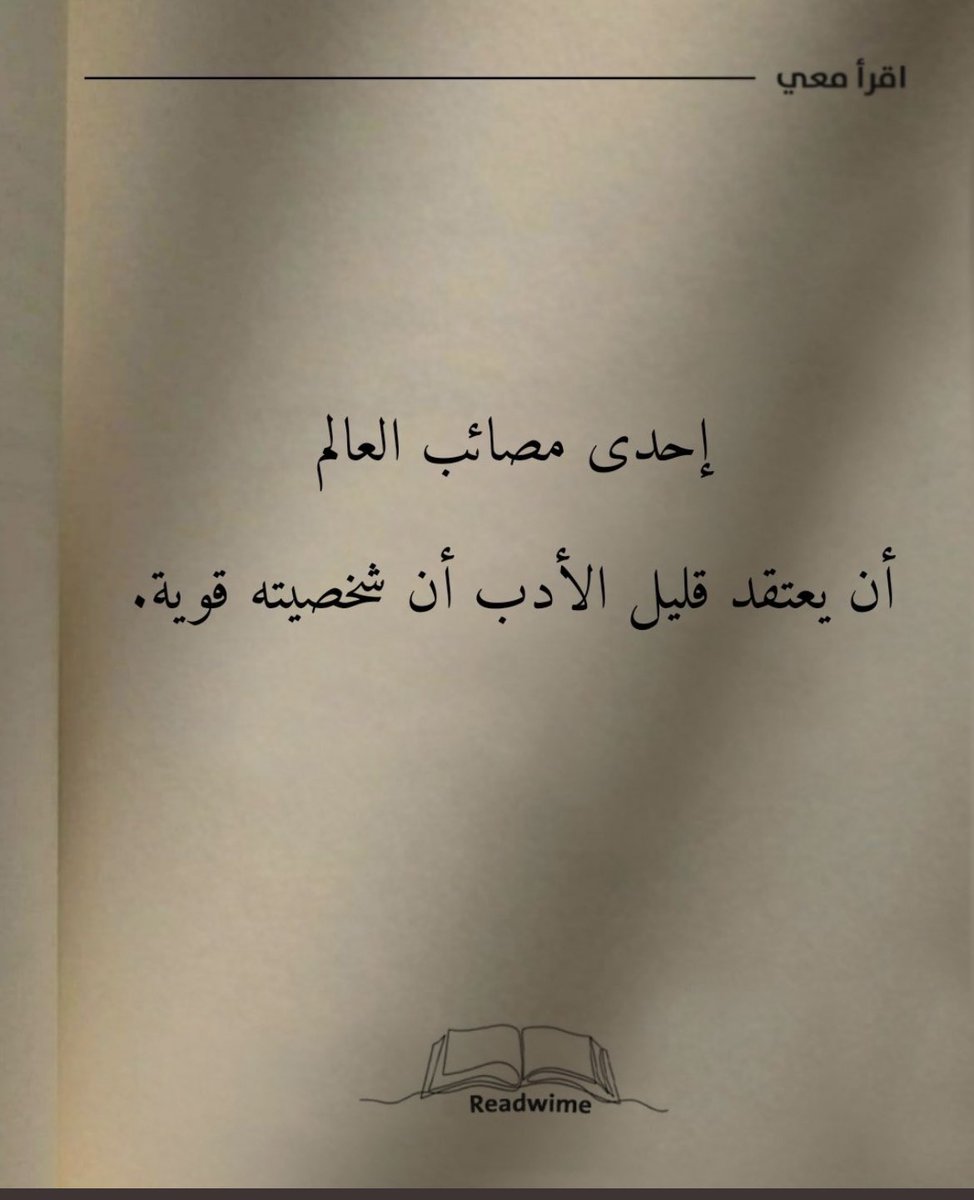 اقرأ معي
إحدى مصائب العالم
أن يعتقد قليل الأدب أن شخصيته قوية.
Readwime